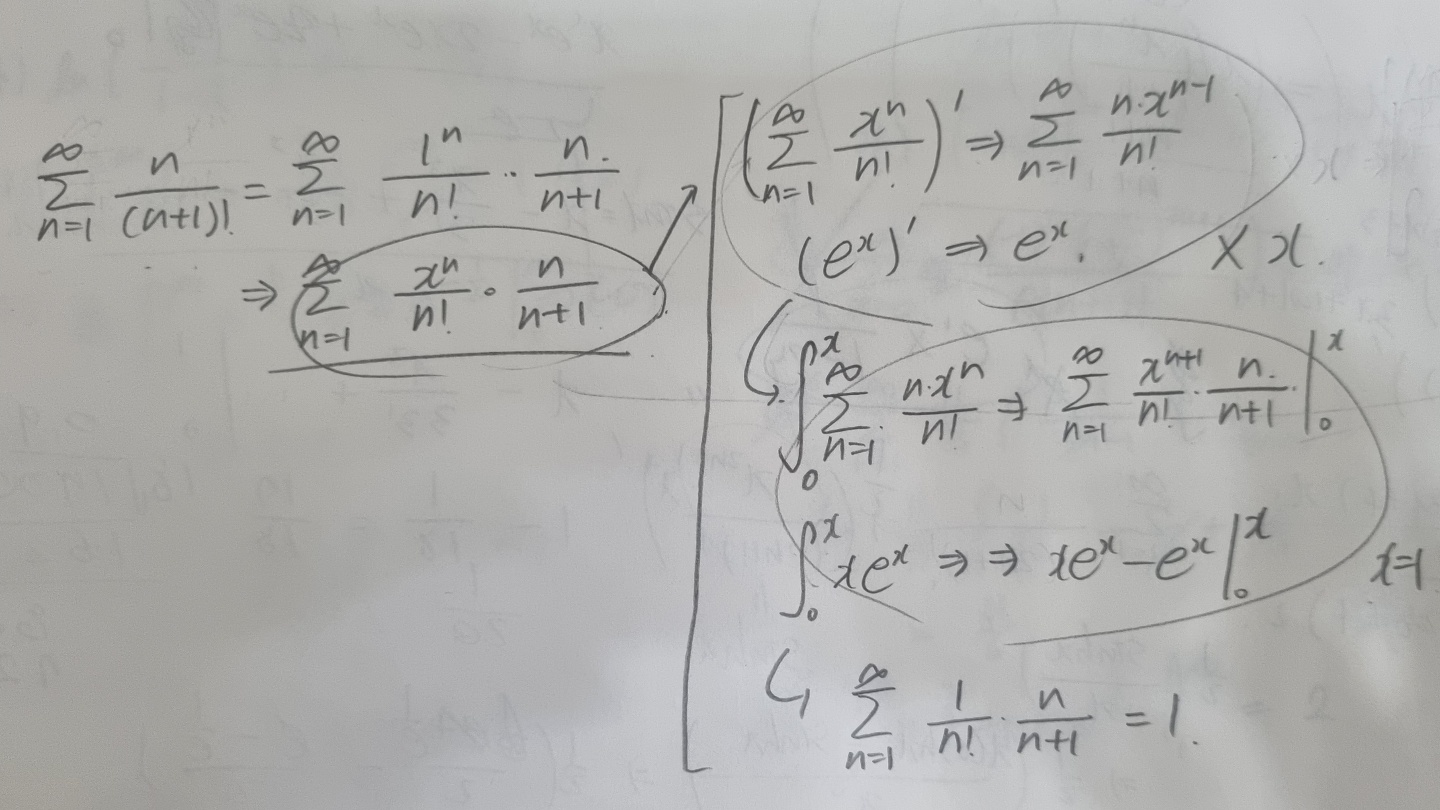 ∞∑n=1 n/(n+1)! = ∞∑n=1 1ⁿ/n! · n/n+1
⇒ ∞∑n=1 xⁿ/n! · n/n+1
(∞∑n=1 xⁿ/n!)' ⇒ ∞∑n=1 n·xⁿ⁻¹/n!
(eˣ)' ⇒ eˣ. × x.
∫₀ˣ ∞∑n=1 n·xⁿ/n! ⇒ ∞∑n=1 xⁿ⁺¹/n! · n/n+1 |₀ˣ
∫₀ˣ xeˣ ⇒ ⇒ xeˣ - eˣ |₀ˣ x=1
∞∑n=1 1/n! · n/n+1 = 1.